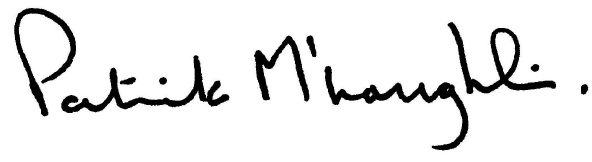 Patrick M'Loughlin.